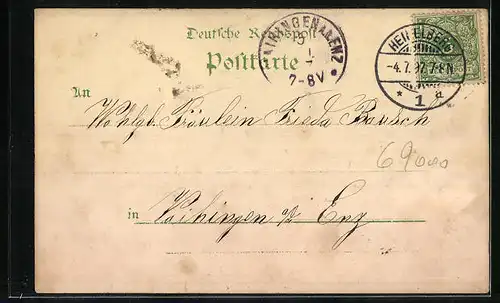 Deutsche Reichspost
Postkarte
VAIHINGEN A.ENZ
7-8V
HEIDELBERG
-4.7.97.7-8N
* 1 *
An
Wohlgb. Fräulein Frieda Bausch
in
Vaihingen a/d Enz